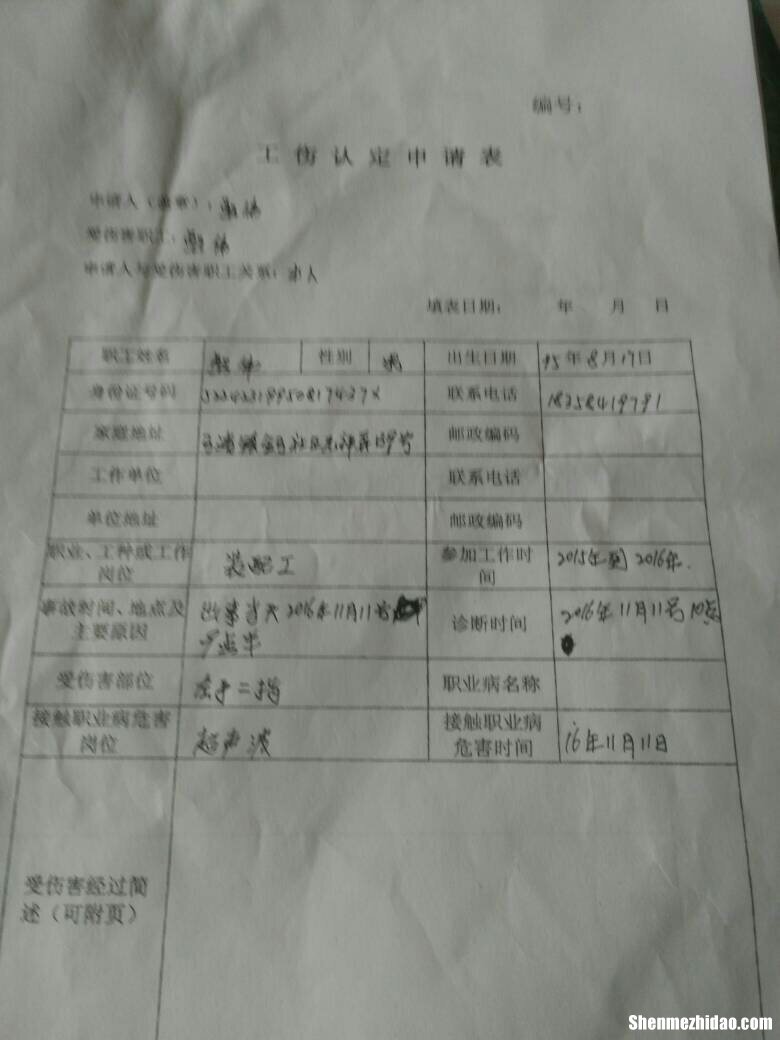 编号：
工伤认定申请表
申请人（盖章）：
受伤害职工：
申请人与受伤害职工关系：本人
填表日期： 年 月 日
职工姓名 性别 男 出生日期 95年8月17日
身份证号码 联系电话 18358419791
家庭地址 邮政编码
工作单位 联系电话
单位地址 邮政编码
职业、工种或工作岗位 装配工 参加工作时间 2015年至2016年.
事故时间、地点及主要原因 出事当天2016年11月11号 9点半 诊断时间 2016年11月11号10点
受伤害部位 左手二指 职业病名称
接触职业病危害岗位 超声波 接触职业病危害时间 16年11月11日
受伤害经过简述（可附页）
Shenmezhidao.com